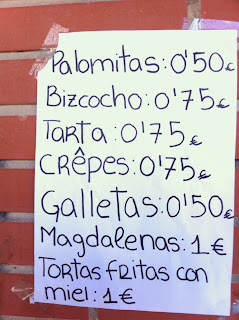 Palomitas: 0'50€
Bizcocho: 0'75€
Tarta: 0'75€
CRÊPES: 0'75€
Galletas: 0'50€
Magdalenas: 1€
Tortas fritas con
miel: 1€